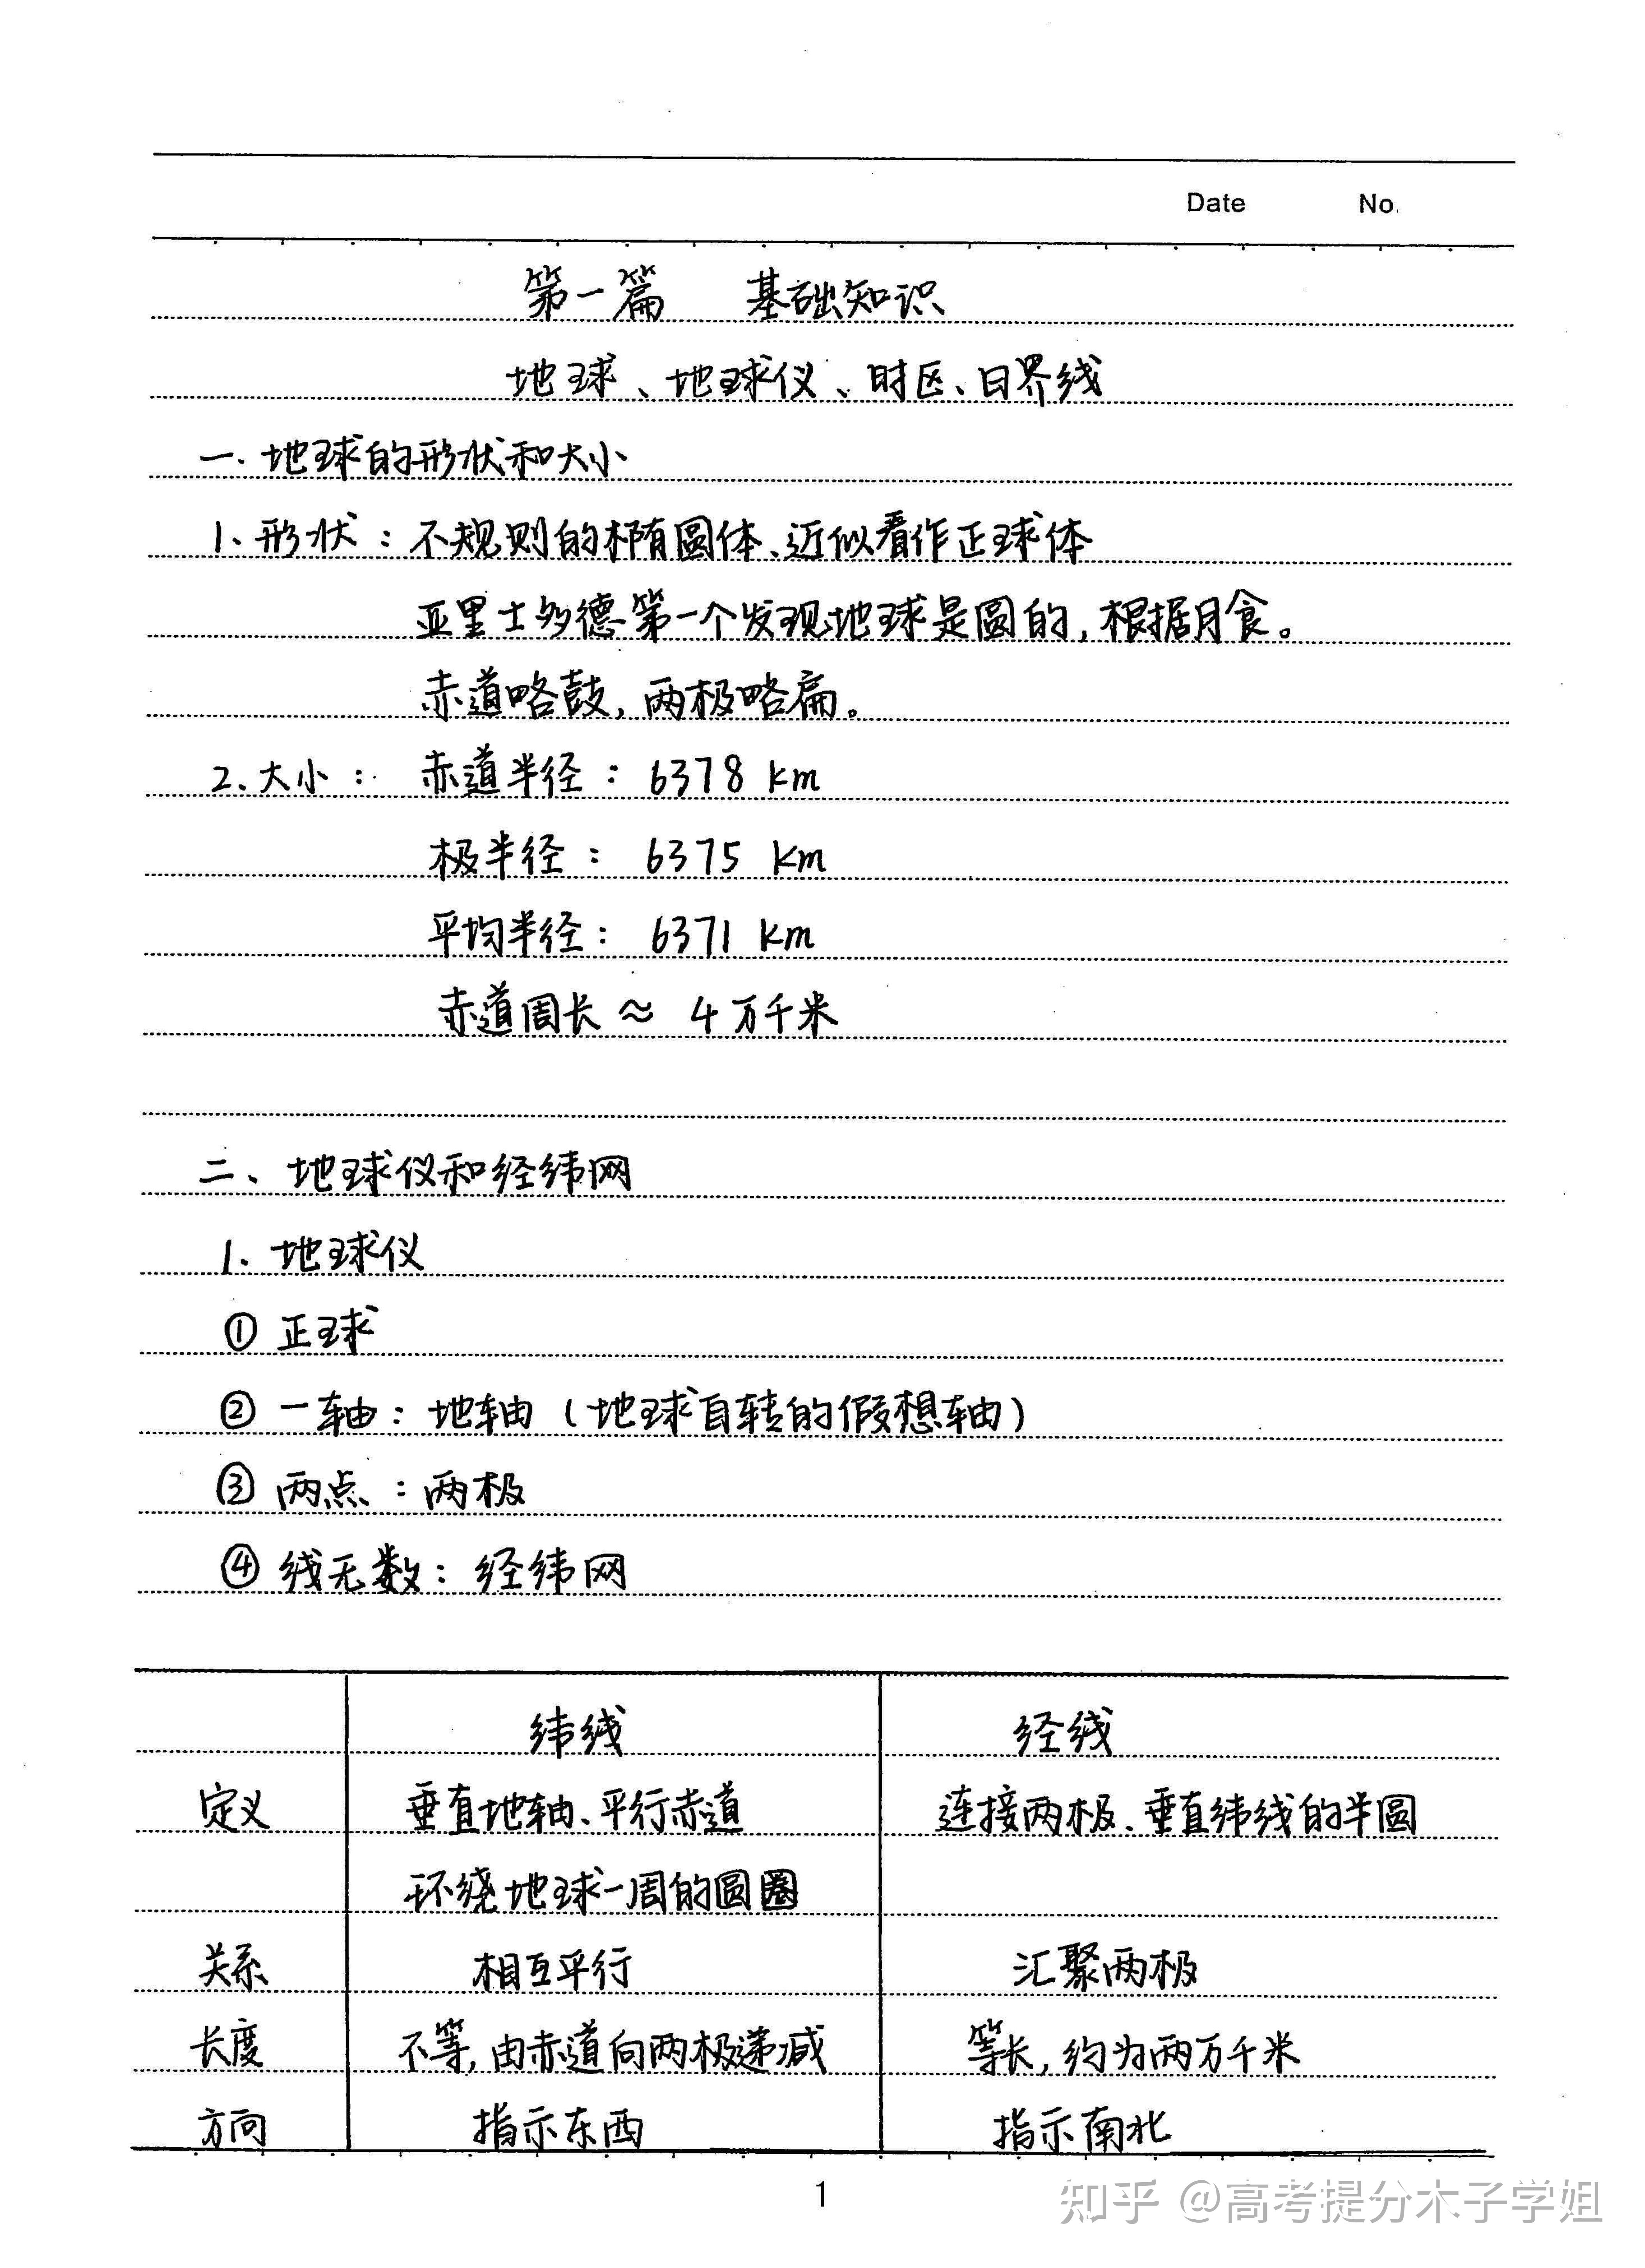 Date No.
第一篇 基础知识
地球、地球仪、时区、日界线
一.地球的形状和大小
1.形状：不规则的椭圆体、近似看作正球体
亚里士多德第一个发现地球是圆的,根据月食。
赤道略鼓,两极略扁。
2.大小： 赤道半径：6378 km
极半径： 6375 km
平均半径： 6371 km
赤道周长≈ 4万千米
二、地球仪和经纬网
1.地球仪
①正球
②一轴：地轴（地球自转的假想轴）
③两点：两极
④线无数：经纬网
纬线 经线
定义 垂直地轴、平行赤道 连接两极、垂直纬线的半圆
环绕地球一周的圆圈
关系 相互平行 汇聚两极
长度 不等,由赤道向两极递减 等长,约为两万千米
方向 指示东西 指示南北
1
知乎 @高考提分木子学姐